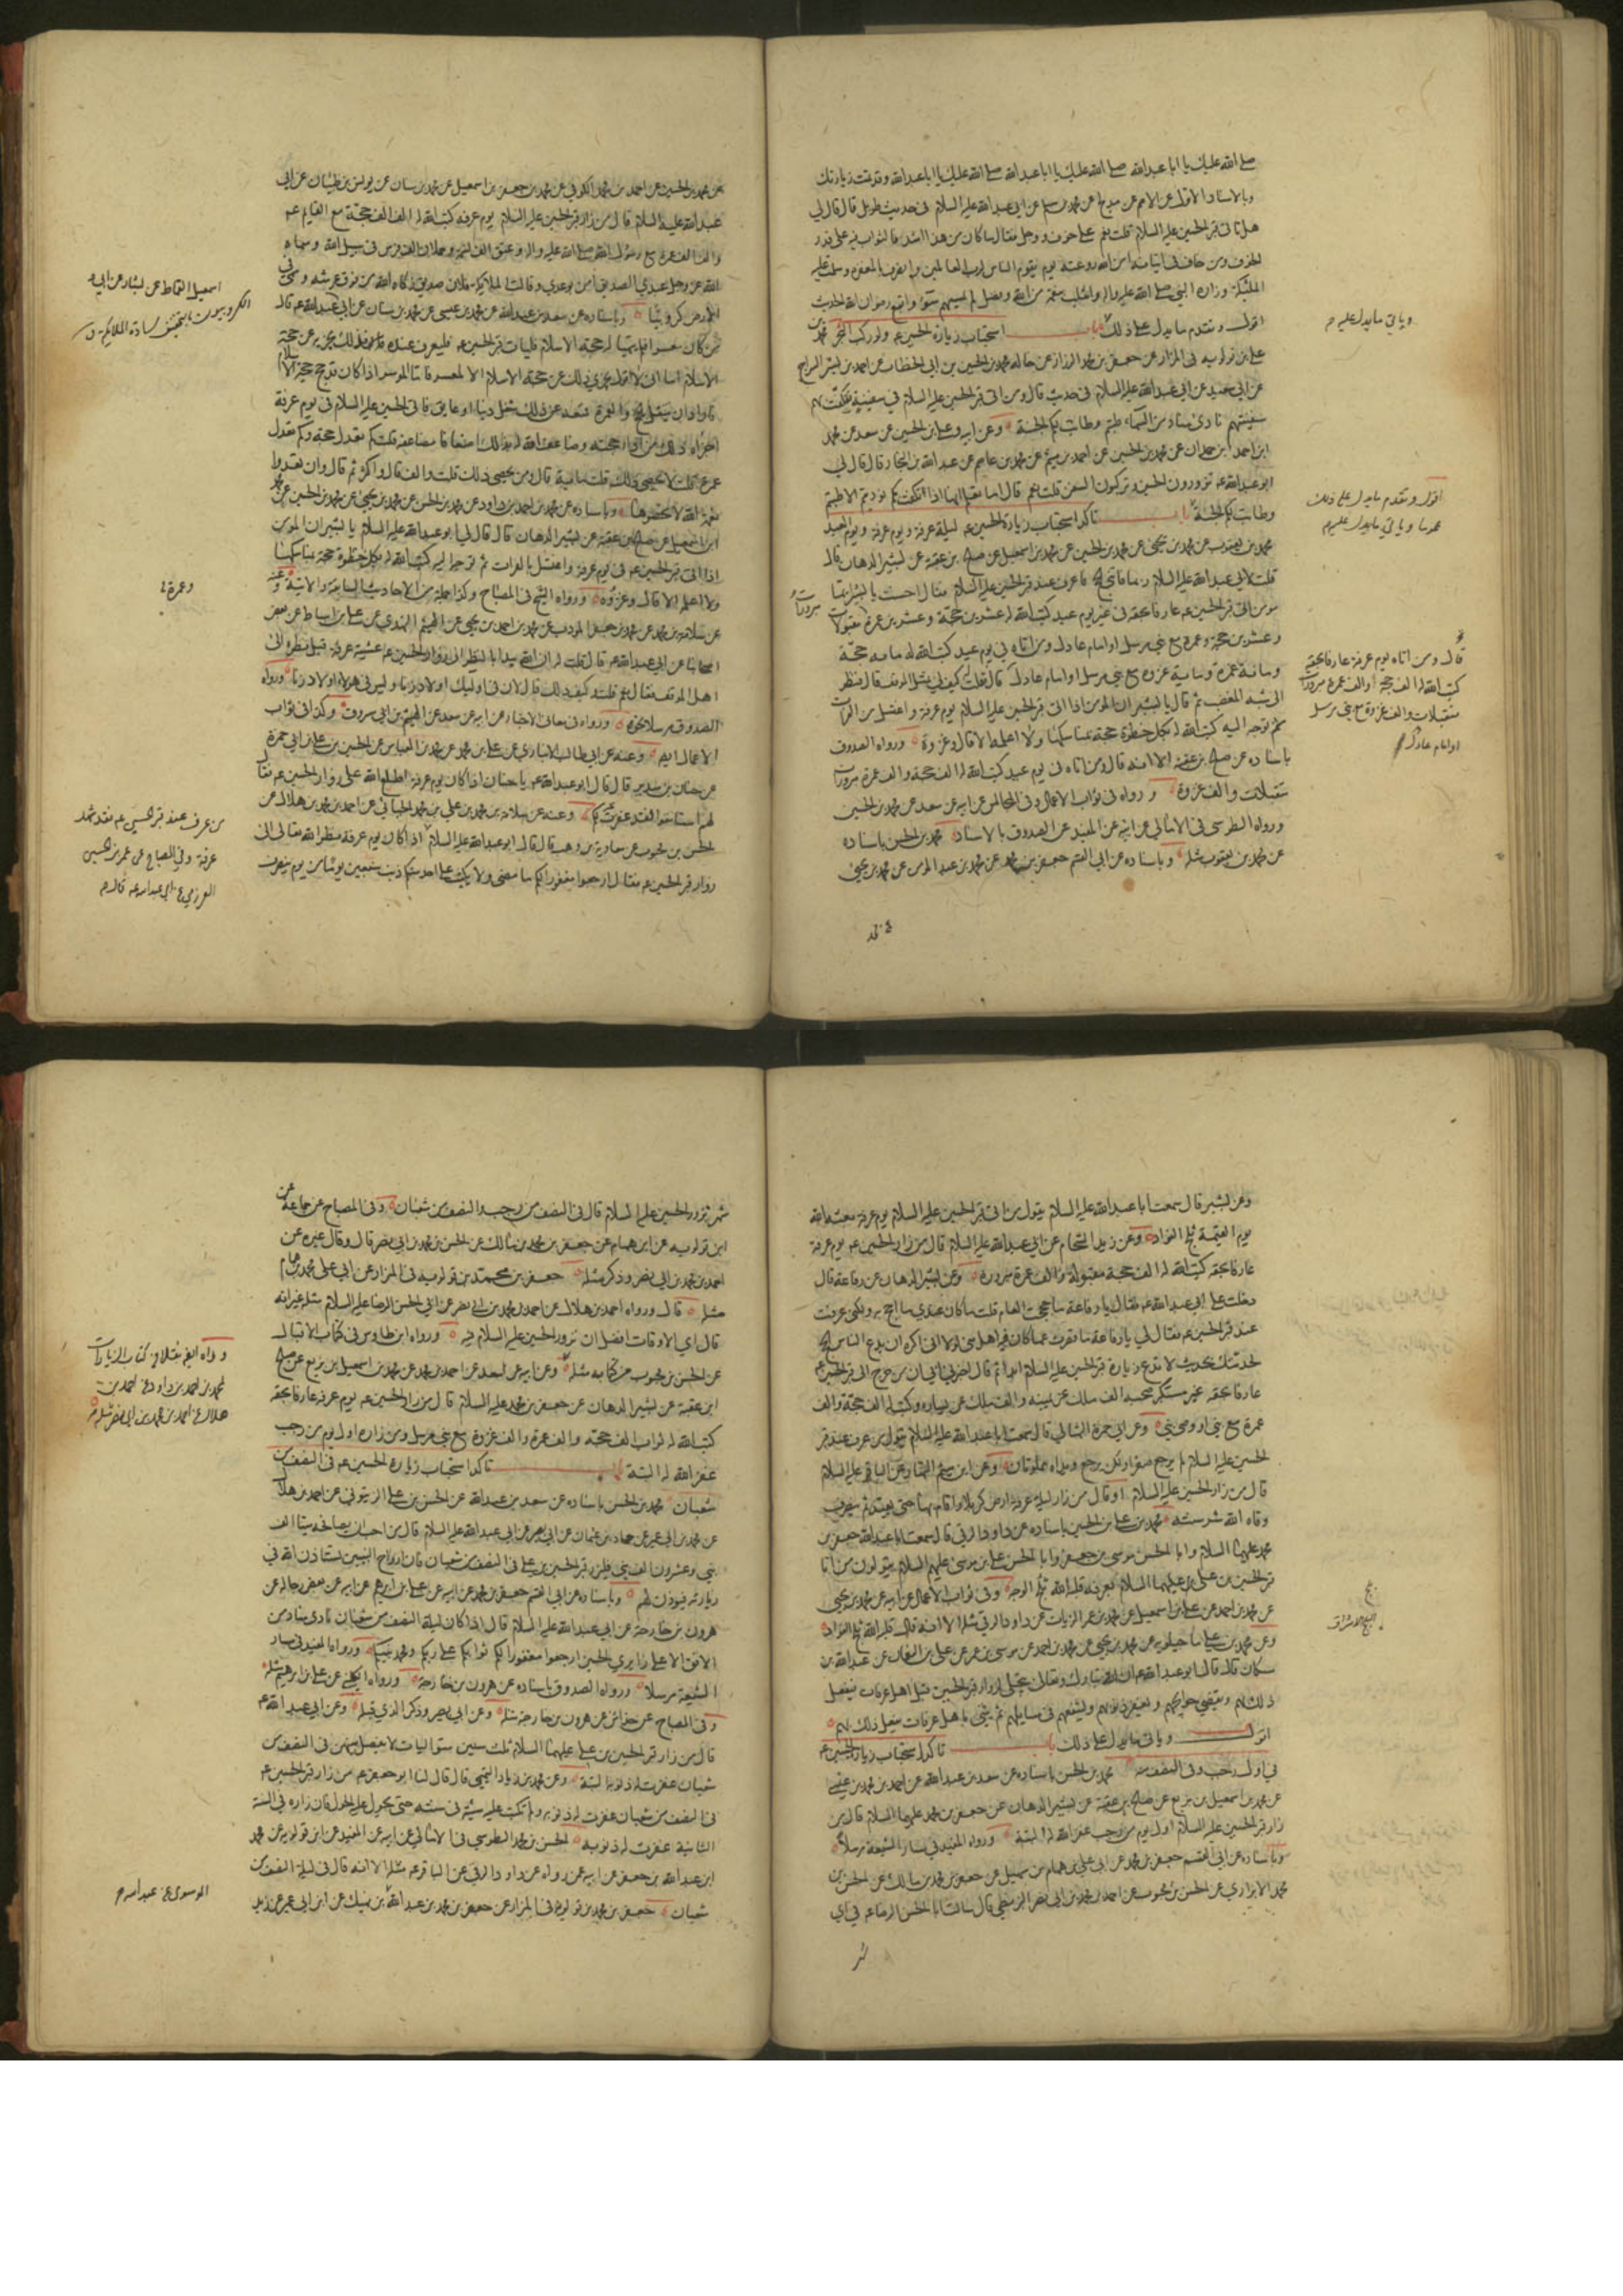 صلى الله عليك يا ابا عبدالله صلى الله عليك يا ابا عبدالله صلى الله عليك يا ابا عبدالله وقد تمت زيارتك
وبالاسناد الاول عن الاصم عن مدلج عن محمد بن مسلم عن ابي عبدالله عليه السلام في حديث طويل قال قال لي
هل تاتي قبر الحسين عليه السلام قلت نعم على خوف ووجل فقال ما كان من هذا اشد فالثواب فيه على قدر
الخوف ومن خاف في اتيانه امن الله روعته يوم يقوم الناس لرب العالمين وانصرف بالمغفرة وسلمت عليه
الملئكة وزاره النبي صلى الله عليه واله وانقلب بنعمة من الله وفضل لم يمسسهم سوء واتبع رضوان الله الحديث
اقول وتقدم ما يدل على ذلك باب استحباب زيارة الحسين عم ولو ركب البحر محمد بن
على بن قولويه في المزار عن جعفر بن محمد الرزاز عن خاله محمد بن الحسين بن ابي الخطاب عن احمد بن بشير السراج
عن ابي سعيد عن ابي عبدالله عليه السلام في حديث قال ومن اتى قبر الحسين عليه السلام في سفينة فتكفت بهم
سفينتهم نادى مناد من السماء طبتم وطابت لكم الجنة وعن ابيه وعلي بن الحسين عن سعد عن محمد
ابن احمد ابن حمدان عن محمد بن الحسين عن احمد بن ميثم عن محمد بن عاصم عن عبد الله بن النجار قال قال لي
ابو عبدالله عم تزورون الحسين وتركبون السفن قلت نعم قال اما تعلم انها اذا انكفت بكم نوديتم الا طبتم
وطابت لكم الجنة باب تاكد استحباب زيارة الحسين عم ليلة عرفة ويوم عرفة ويوم العيد
محمد بن يعقوب عن محمد بن يحيى عن محمد بن الحسين عن محمد بن اسمعيل عن صالح بن عقبة عن بشير الدهان قال
قلت لابي عبدالله عليه السلام ربما فاتني الحج فاعرف عند قبر الحسين عليه السلام فقال احسنت يا بشير ايما
مومن اتى قبر الحسين عم عارفا بحقه في غير يوم عيد كتب الله له عشرين حجة وعشرين عمرة مبرورات مقبولات
وعشرين حجة وعمرة مع نبي مرسل او امام عادل ومن اتاه في يوم عيد كتب الله له مائة حجة
ومائة عمرة ومائة غزوة مع نبي مرسل او امام عادل قال قلت كيف لي بمثل الموقف قال فنظر
الي شبه المغضب ثم قال يا بشير ان المومن اذا اتى قبر الحسين عليه السلام يوم عرفة واغتسل من الفرات
ثم توجه اليه كتب الله له بكل خطوة حجة بمناسكها ولا اعلمه الا قال وغزوة ورواه الصدوق
باسناده عن صالح بن عقبة الا انه قال ومن اتاه في يوم عيد كتب الله له الف حجة والف عمرة مبرورات
متقبلات والف غزوة ورواه في ثواب الاعمال وفي المجالس عن ابيه عن سعد عن محمد بن الحسين
ورواه الطوسي في الامالي عن ابيه عن المفيد عن الصدوق بالاسناد محمد بن الحسن باسناده
عن محمد بن يعقوب مثله وباسناده عن ابي القسم جعفر بن محمد عن محمد بن عبد المؤمن عن محمد بن يحيى
وياتي ما يدل عليه
اقول وتقدم ما يدل على ذلك
عموما وياتي ما يدل عليه
قال ومن اتاه يوم عرفة عارفا بحقه
كتب الله له الف حجة والف عمرة مبرورات
متقبلات والف غزوة مع نبي مرسل
او امام عادل
عن محمد بن الحسين عن احمد بن محمد الكوفي عن محمد بن جعفر بن اسمعيل عن محمد بن سنان عن يونس بن ظبيان عن ابي
عبدالله عليه السلام قال من زار قبر الحسين عليه السلام يوم عرفة كتب الله له الف الف حجة مع القائم عم
والف الف عمرة مع رسول الله صلى الله عليه واله وعتق الف نسمة وحملان الف فرس في سبيل الله وسماه
الله عز وجل عبدي الصديق امن بوعدي وقالت الملائكة فلان صديق زكاه الله من فوق عرشه وسمي في
الارض كروبيا وباسناده عن سعد بن عبدالله عن محمد بن عيسى عن محمد بن سنان عن ابي عبدالله عم قال
من كان معسرا فلم يتهيا له حجة الاسلام فليات قبر الحسين عم فليعرف عنده فذلك يجزيه عن حجة
الاسلام اما اني لا اقول يجزي ذلك عن حجة الاسلام الا لمعسر فاما الموسر اذا كان قد حج حجة الاسلام
فاراد ان يتنفل بالحج والعمرة فمنعه عن ذلك شغل دنيا او عايق فاتى الحسين عليه السلام في يوم عرفة
اجزاه ذلك من اداء حجته وضاعف الله له بذلك اضعافا مضاعفة قلت كم تعدل حجة وكم تعدل
عمرة قال لا يحصى ذلك قلت مائة قال ومن يحصي ذلك قلت الف قال واكثر ثم قال وان تعدوا
نعمة الله لا تحصوها وباسناده عن محمد بن احمد بن داود عن محمد بن الحسن عن محمد بن يحيى عن محمد بن الحسين عن محمد
ابن اسمعيل عن صالح بن عقبة عن بشير الدهان قال قال لي ابو عبدالله عليه السلام يا بشير ان المومن
اذا اتى قبر الحسين عم في يوم عرفة واغتسل بالفرات ثم توجه اليه كتب الله له بكل خطوة حجة بمناسكها
ولا اعلمه الا قال وغزوة ورواه الشيخ في المصباح وكذا جملة من الاحاديث السابقة والاتية وعنه
عن سلامة بن محمد عن محمد بن جعفر المودب عن محمد بن احمد بن يحيى عن الهيثم النهدي عن علي بن اسباط عن بعض
اصحابنا عن ابي عبدالله عم قال قلت له ان الله يبدا بالنظر الى زوار الحسين عم عشية عرفة قبل نظره الى
اهل الموقف فقال نعم قلت كيف ذلك قال لان في اوليك اولاد زنا وليس في هولاء اولاد زنا ورواه
الصدوق مرسلا نحوه ورواه في معاني الاخبار عن ابيه عن سعد عن الهيثم بن ابي مسروق وكذا في ثواب
الاعمال وعنه عن ابي طالب الانباري عن علي بن محمد عن محمد بن العباس عن الحسين بن علي بن ابي حمزة
عن حنان بن سدير قال قال ابو عبدالله عم يا حنان اذا كان يوم عرفة اطلع الله على زوار الحسين عم فقال
لهم استانفوا فقد غفرت لكم وعنه عن سلامة بن محمد عن علي بن محمد الجبائي عن احمد بن هلال عن
الحسن بن محبوب عن معاوية بن وهب قال قال ابو عبدالله عليه السلام اذا كان يوم عرفة نظر الله تعالى الى
زوار قبر الحسين عم فقال ارجعوا مغفورا لكم ما مضى ولا يكتب على احد منكم ذنب سبعين يوما من يوم ينصرف
اسمعيل القماط عن بشار عن ابي
وعمرة
من عرف عند قبر الحسين عم فقد شهد
عرفة وفي المصباح عن عمر بن الحسن
العرزمي عن ابي عبدالله عم قال
وعن بشير قال سمعت ابا عبدالله عليه السلام يقول من اتى قبر الحسين عليه السلام يوم عرفة بعثه الله
يوم القيمة ثلج الفؤاد وعن زيد الشحام عن ابي عبدالله عليه السلام قال من زار الحسين عم يوم عرفة
عارفا بحقه كتب الله له الف حجة مقبولة والف عمرة مبرورة وعن بشير الدهان عن رفاعة قال
دخلت على ابي عبدالله عم فقال يا رفاعة ما حججت العام قلت ما كان عندي ما احج به ولكني عرفت
عند قبر الحسين عم فقال لي يا رفاعة ما قصرت عما كان فيه اهل منى لولا اني اكره ان يدع الناس الحج
لحدثتك بحديث لا تدع زيارة قبر الحسين عليه السلام ابدا ثم قال اخبرني ابي ان من خرج الى قبر الحسين عم
عارفا بحقه غير مستكبر صحبه الف ملك عن يمينه والف ملك عن يساره وكتب له الف حجة والف
عمرة مع نبي او وصي نبي وعن ابي حمزة الثمالي قال سمعت ابا عبدالله عليه السلام يقول من عرف عند قبر
الحسين عليه السلام لم يرجع صفرا ولكن يرجع ويداه مملوتان وعن ابن ميثم التمار عن الباقر عليه السلام
قال من زار الحسين عليه السلام او قال من زار ليلة عرفة ارض كربلا واقام بها حتى يعيد ثم ينصرف
وقاه الله شر سنته محمد بن علي بن الحسين باسناده عن داود الرقي قال سمعت ابا عبدالله جعفر بن
محمد عليهما السلام وابا الحسن موسى بن جعفر وابا الحسن علي بن موسى عليهم السلام يقولون من اتى
قبر الحسين بن علي عليهما السلام بعرفة قلبه الله ثلج الوجه وفي ثواب الاعمال عن ابيه عن محمد بن يحيى
عن محمد بن احمد عن علي بن اسمعيل عن محمد بن عمر الزيات عن داود الرقي مثله الا انه قال قلبه الله ثلج الفؤاد
وعن محمد بن علي ماجيلويه عن محمد بن يحيى عن محمد بن احمد عن موسى بن عمر عن علي بن النعمان عن عبدالله بن
مسكان قال قال ابو عبدالله عم ان الله تبارك وتعالى يتجلى لزوار قبر الحسين قبل اهل عرفات فيفعل
ذلك بهم ويقضي حوائجهم ويغفر ذنوبهم ويشفعهم في مسايلهم ثم يثني باهل عرفات يفعل ذلك بهم
اقول وياتي ما يدل على ذلك باب تاكد استحباب زيارة الحسين عم
في اول رجب وفي النصف منه محمد بن الحسن باسناده عن سعد بن عبدالله عن احمد بن محمد بن عيسى
عن محمد بن اسمعيل بن بزيع عن صالح بن عقبة عن بشير الدهان عن جعفر بن محمد عليهما السلام قال من
زار قبر الحسين عليه السلام اول يوم من رجب غفر الله له البتة ورواه المفيد في مسار الشيعة مرسلا
وباسناده عن ابي القسم جعفر بن محمد عن ابي علي بن همام بن سهيل عن جعفر بن محمد بن مالك عن الحسن بن
محمد الابزاري عن الحسن بن محبوب عن احمد بن محمد بن ابي نصر البزنطي قال سالت ابا الحسن الرضا عم في اي
شهر نزور الحسين عليه السلام قال في النصف من رجب والنصف من شعبان وفي المصباح عن جماعة عن
ابن قولويه عن ابن همام عن جعفر بن محمد بن مالك عن الحسن بن محمد بن ابي نصر قال وقال غيره عن
احمد بن محمد بن ابي نصر وذكر مثله جعفر بن محمد بن قولويه في المزار عن ابي علي محمد بن همام
مثله قال ورواه احمد بن هلال عن احمد بن محمد بن ابي نصر عن ابي الحسن الرضا عليه السلام مثله غير انه
قال اي الاوقات افضل ان نزور الحسين عليه السلام فيه ورواه ابن طاوس في كتاب الاقبال
عن الحسن بن محبوب من كتابه مثله وعن ابيه عن سعد عن احمد بن محمد عن محمد بن اسمعيل بن بزيع عن صالح
ابن عقبة عن بشير الدهان عن جعفر بن محمد عليه السلام قال من زار الحسين عم يوم عرفة عارفا بحقه
كتب الله له ثواب الف حجة والف عمرة والف غزوة مع نبي مرسل ومن زاره اول يوم من رجب
غفر الله له البتة باب تاكد استحباب زيارة الحسين عم في النصف من
شعبان محمد بن الحسن باسناده عن سعد بن عبدالله عن الحسن بن علي الزيتوني عن احمد بن هلال
عن محمد بن ابي عمير عن حماد بن عثمان عن ابي بصير عن ابي عبدالله عليه السلام قال من احب ان يصافحه مائتا الف
نبي وعشرون الف نبي فليزر قبر الحسين بن علي في النصف من شعبان فان ارواح النبيين تستاذن الله في
زيارته فيوذن لهم وباسناده عن ابي القسم جعفر بن محمد عن ابيه عن علي بن ابرهيم عن ابيه عن بعض رجاله عن
هرون بن خارجة عن ابي عبدالله عليه السلام قال اذا كان ليلة النصف من شعبان نادى مناد من
الافق الاعلى زايري الحسين ارجعوا مغفورا لكم ثوابكم على ربكم ومحمد نبيكم ورواه المفيد في مسار
الشيعة مرسلا ورواه الصدوق باسناده عن هرون بن خارجة ورواه الكليني عن علي بن ابرهيم مثله
وفي المصباح عن هرون بن خارجة مثله وعن ابي بصير وذكر الذي قبله وعن ابي عبدالله عم
قال من زار قبر الحسين بن علي عليهما السلام ثلث سنين متواليات لا يفصل بينهن في النصف من
شعبان غفرت له ذنوبه البتة وعن محمد بن زياد البجلي قال قال لنا ابو جعفر عم من زار قبر الحسين عم
في النصف من شعبان غفرت له ذنوبه ولم تكتب عليه سيئة في سنته حتى يحول عليه الحول فان زاره في السنة
الثانية غفرت له ذنوبه الحسن بن محمد الطوسي في الامالي عن ابيه عن المفيد عن ابن قولويه عن محمد
ابن عبدالله بن جعفر عن ابيه عن رواه عن داود الرقي عن الباقر عم مثله الا انه قال في ليلة النصف من
شعبان جعفر بن محمد بن قولويه في المزار عن جعفر بن محمد بن عبدالله بن نهيك عن ابن ابي عمير عن زيد
ورواه ايضا نقلا من كتاب الزيارات
لمحمد بن احمد بن داود عن احمد بن
هلال عن احمد بن محمد بن ابي نصر مثله
الموسوي عن عبدالله